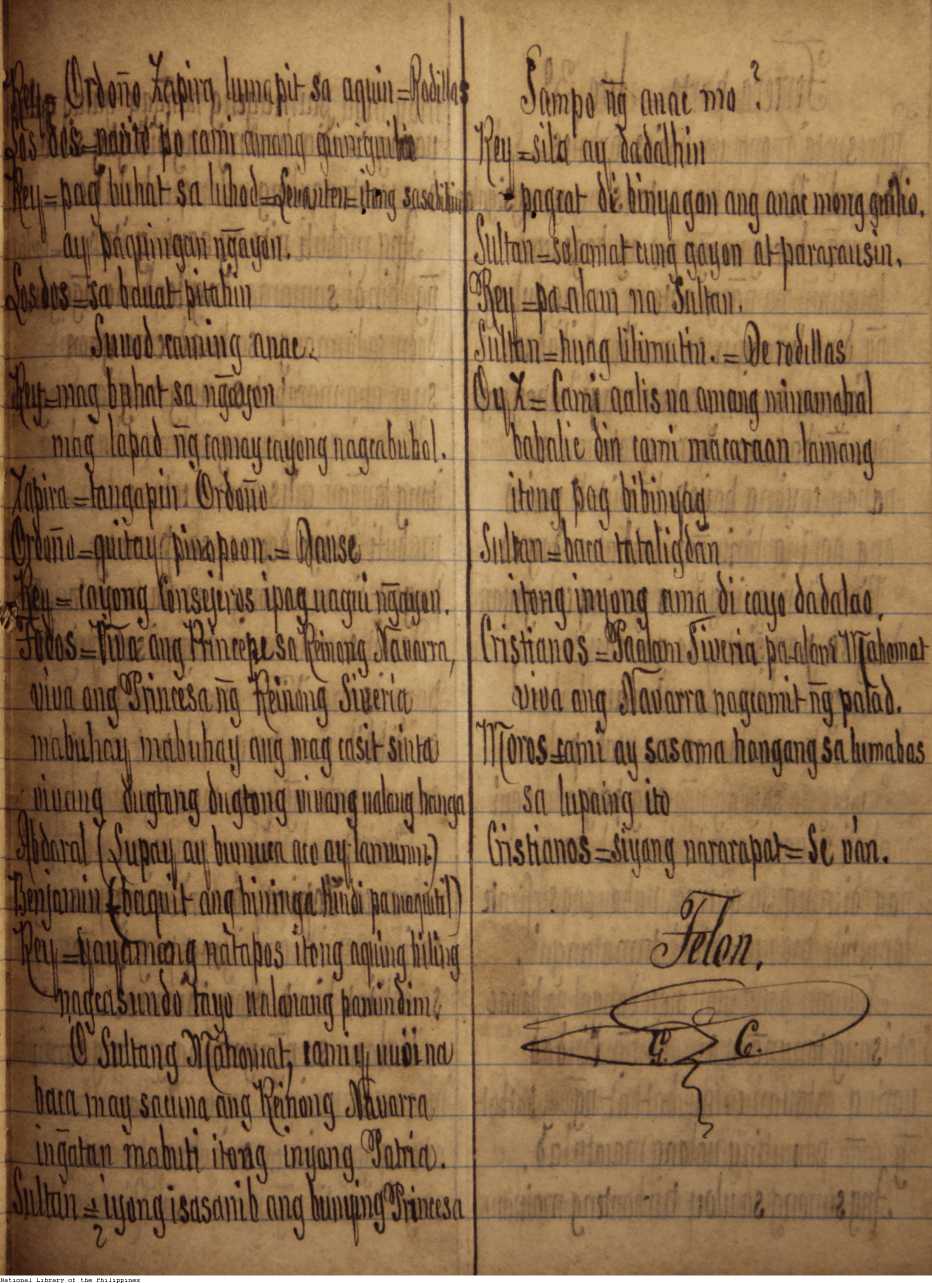 Rey = Ordoño Zapira, lumapit sa aquin = Rodillas
Los dos = narito po cami amang
Rey = pag buhat sa luhod = Levanten = itong
ay pagpingan nḡayon.
Los dos = sa bauat pitahin
Sunod caming anac.
Rey = mag buhat sa nḡayon
mag lapad nḡ camay cayong nagcabuhol.
Zapira = tangapin Ordoño
Ordoño = guitay pinopoon. = Danse
Rey = cayong Consejeros ipag nḡayon.
Todos = Viva ang Principe sa Reinong Navarra,
viva ang Princesa nḡ Reinong Siveria
mabuhay, mabuhay ang mag casit sinta
vivang dugtong dugtong vivang ualang hanga
Abdaral (Lupay ay bumuca aco ay lamunin)
Benjamin (baquit ang hininga hindi pa)
Rey = yayamang natapos itong aquing biling
nagcasundo tayo ualanang panindim.
O Sultang Mahomat, camiy uuoi na
baca may sacuna ang Reinong Navarra
inḡatan mabuti itong inyong Patria.
Sultan = iyong isasanib ang bunying Princesa
Sampo nḡ anac mo ?
Rey = sila ay dadalhin
pagcat di binyagan ang anac mong
Sultan = salamat cung gayon at pararausin.
Rey = pa-alam na Sultan.
Sultan = huag lilimutin. = De rodillas
O y Z = Cami aalis na amang minamahal
babalic din cami macaraan lamang
itong pag bibinyag
Sultan = baca tataligdan
itong inyong ama di cayo dadalao.
Cristianos = Paalam Siveria pa-alam Mahomat
viva ang Navarra nagcamit nḡ palad.
Moros = cami ay sasama hangang sa lumabas
sa lupaing ito
Cristianos = siyang nararapat = Se ván.
Telon.
G. C.